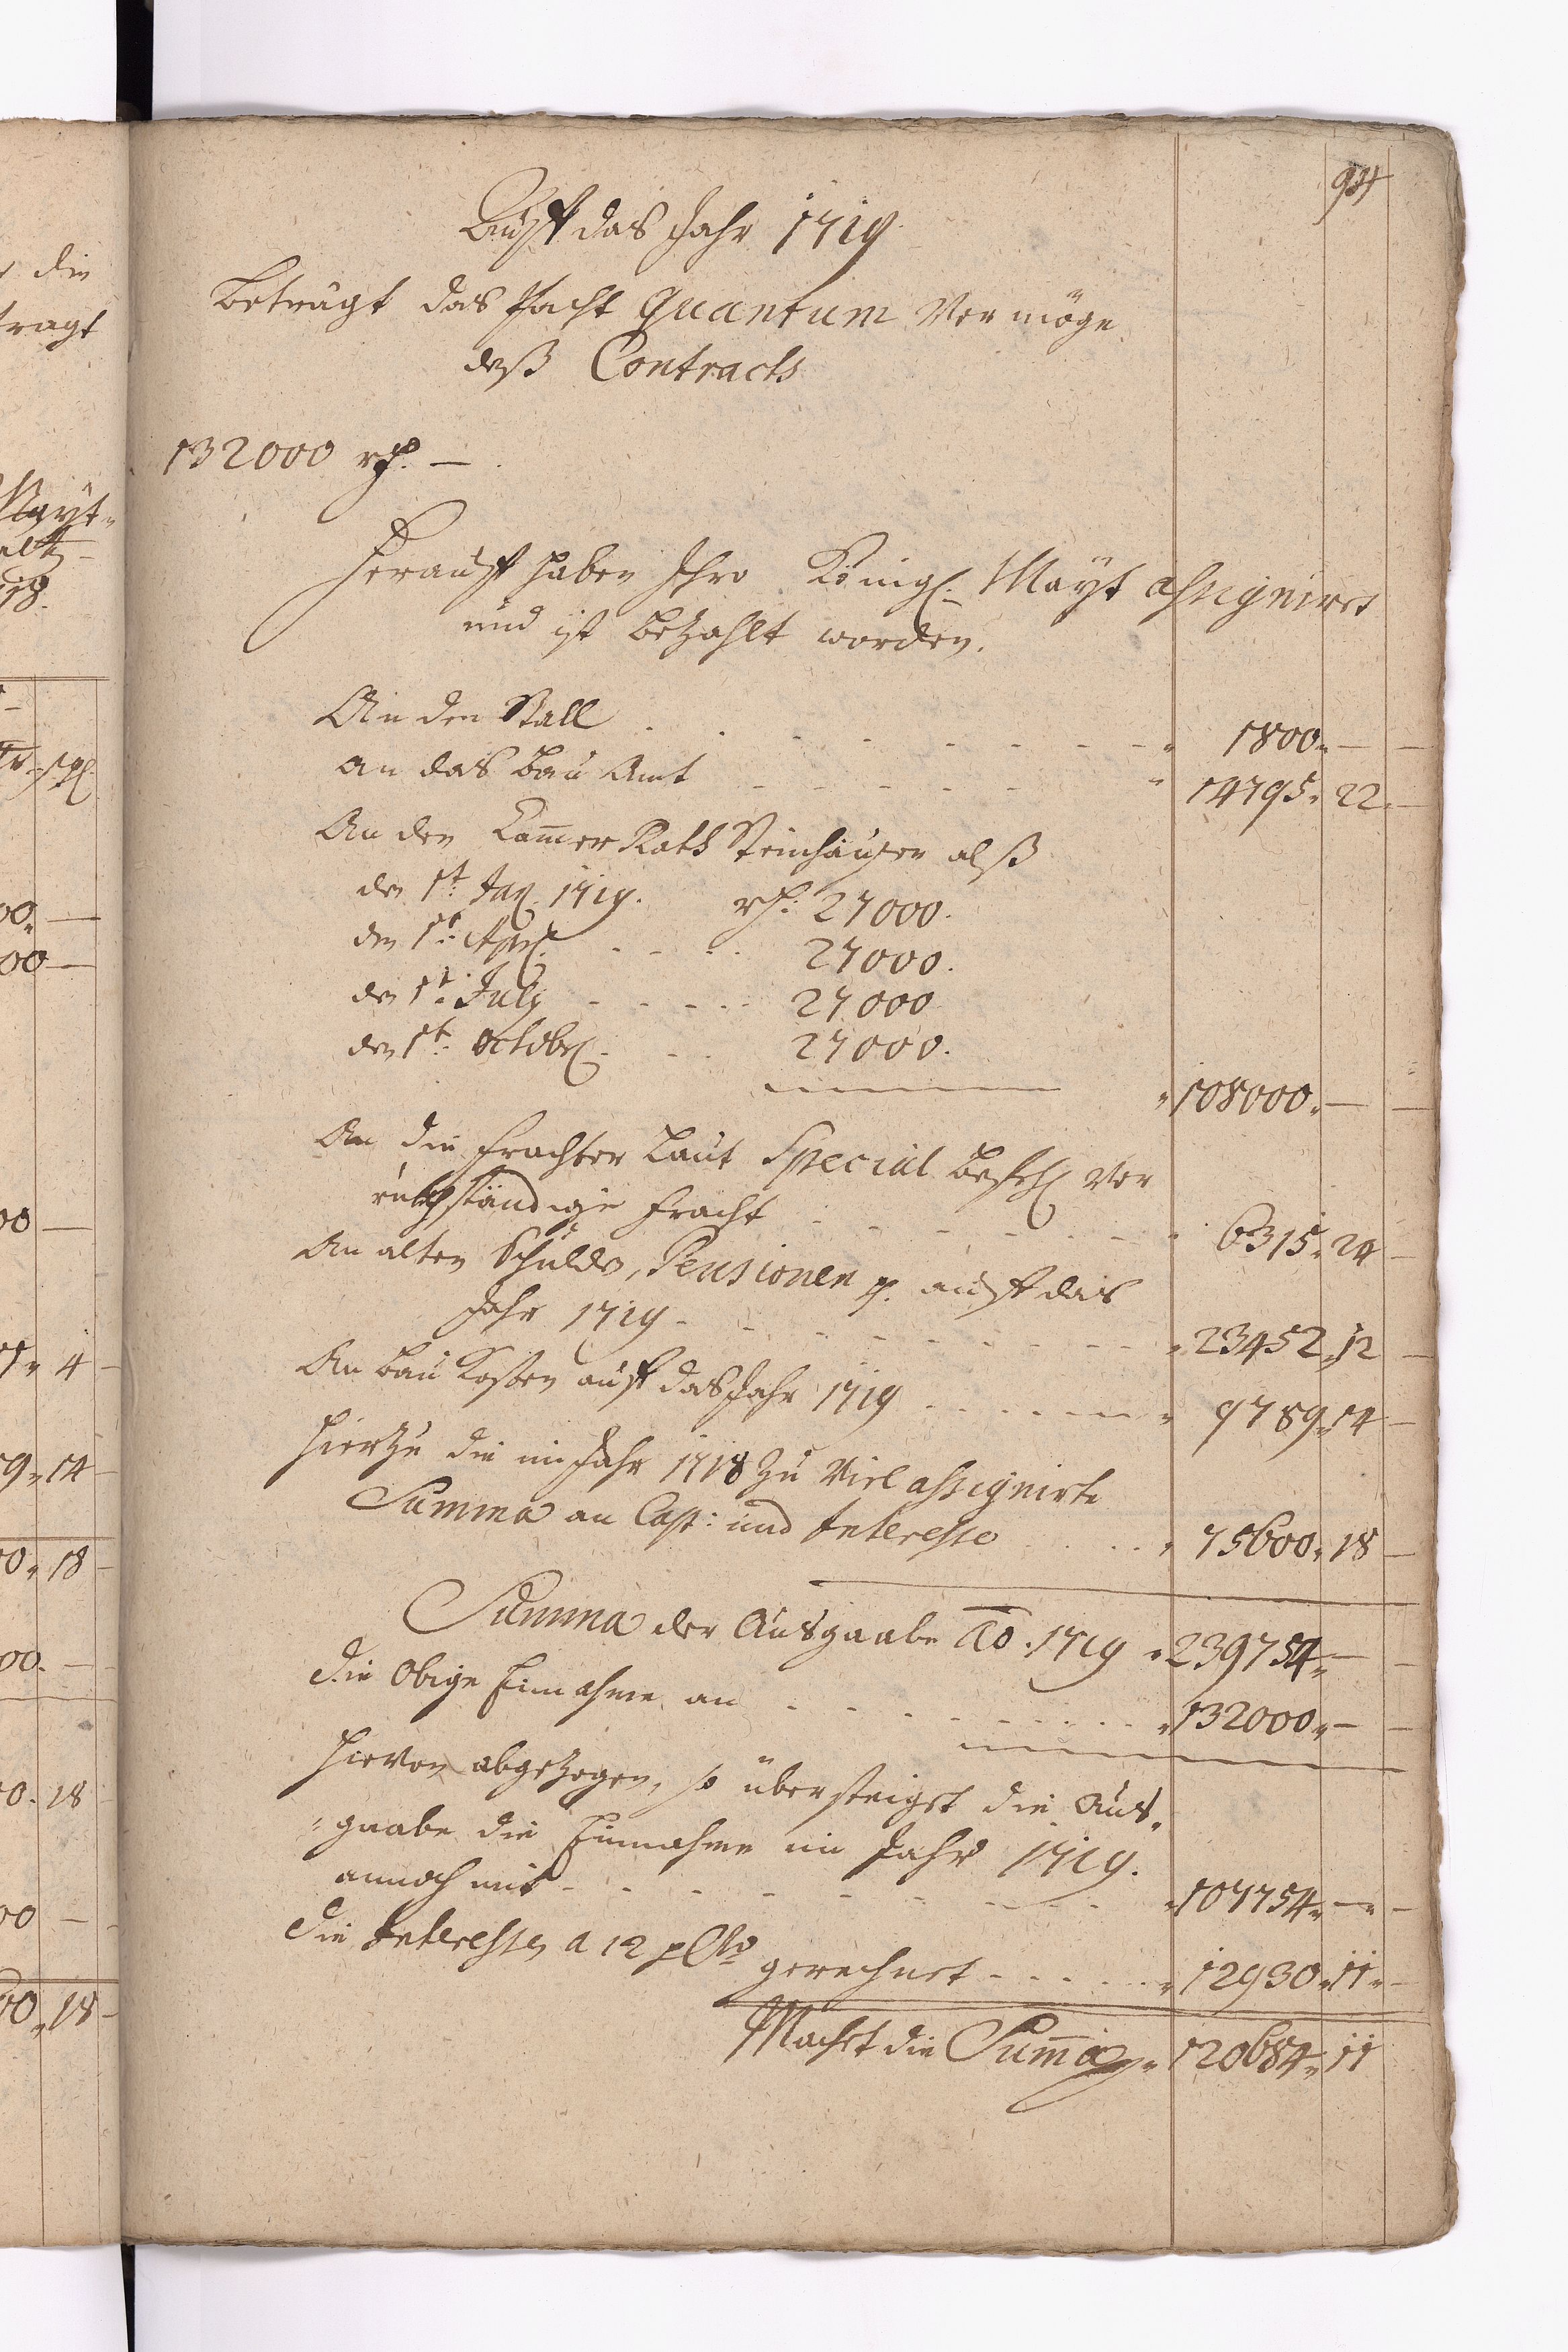 94
Auff das Jahr 1719
Beträgt das Pacht Quantum Vermöge
deß Contracts
132000 rth. —
Herauff haben Ihro Königl. Mayt assigniret
und ist bezahlt worden.
An den Stall . . . . . . . " 1800 " — —
an das Bau Amt - - - - - " 14795 " 22 —
An den Cammer Rath Steinhäuser alß
den 1t: Jan. 1719. rth: 27000.
den 1t: Apr. - - - - 27000.
den 1t: July - - - - - 27000
den 1t: Octobr. - - - 27000.
" 108000 " — —
An die Frachter Laut Special Befehl vor
rückständige Fracht - - - - - - " 6315 " 24 —
An alten Schulden, Pensionen p. auff das
Jahr 1719 - - - - - - - - " 23452 " 12 —
An Bau Kosten auff das Jahr 1719 - - - - - " 9789 " 14 —
Hierzu die im Jahr 1718 zu Viel assignirte
Summa an Cap: und Interesse . . . . " 75600 " 18 —
Summa der Ausgaabe Ao. 1719 " 239754 " — —
die Obige Einnahme an - - - - - - - - " 132000 " — —
Hievon abgezogen, so übersteiget die Aus-
-gaabe die Einnahme im Jahr 1719.
annoch mit - - - - - - - - " 107754 " — —
die Interessen a 12 p Cto gerechnet - - - - - " 12930 " 11 " —
Machet die Summa " 120684 " 11